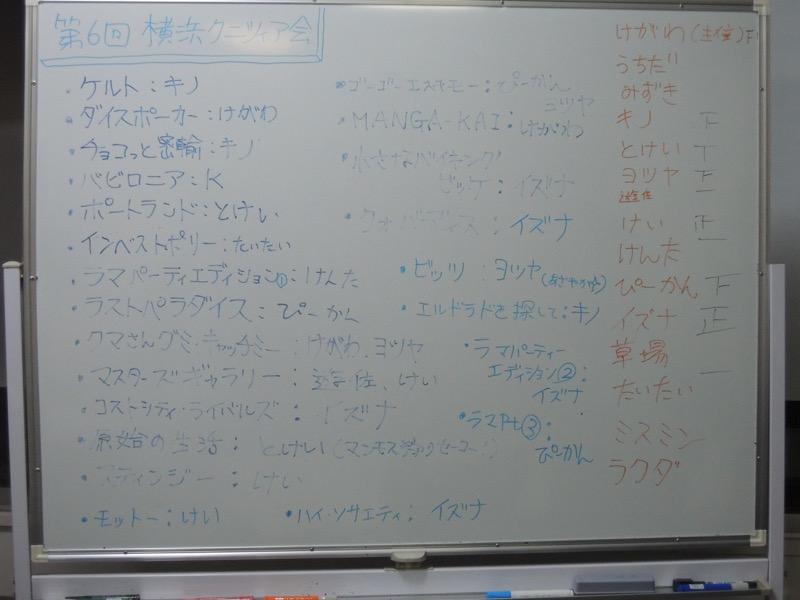 第6回 横浜クニツィア会
・ケルト:キノ
・ダイスポーカー:けがわ
・チョコっと密輸:キノ
・バビロニア:K
・ポートランド:とけい
・インベストポリー:たいたい
・ラマパーティエディション①:けんた
・ラストパラダイス:ぴーかん
・クマさんグミ・キャッチミー:けがわ、ヨツヤ
・マスターズギャラリー:遊佐、けい
・コストシティ・ライバルズ:イズナ
・原始の生活:とけい
・スティンジー:けい
・モットー:けい
・ハイ・ソサエティ:イズナ
・ゴーゴーエスキモー:ぴーかん
ヨツヤ
・MANGA-KAI:けがわ
・小さなバイキング
ビッケ:イズナ
・クォ・バディス:イズナ
・ビッツ:ヨツヤ
・エルドラドを探して:キノ
・ラマパーティー
エディション②:
イズナ
・ラマPt③:
ぴーかん
けがわ(主催)下
うちだ
みずき
キノ 下
とけい 丅
ヨツヤ 正
遊佐
けい 正一
けんた
ぴーかん 下
イズナ 正一
草場
たいたい
ミスミン
ラクダ